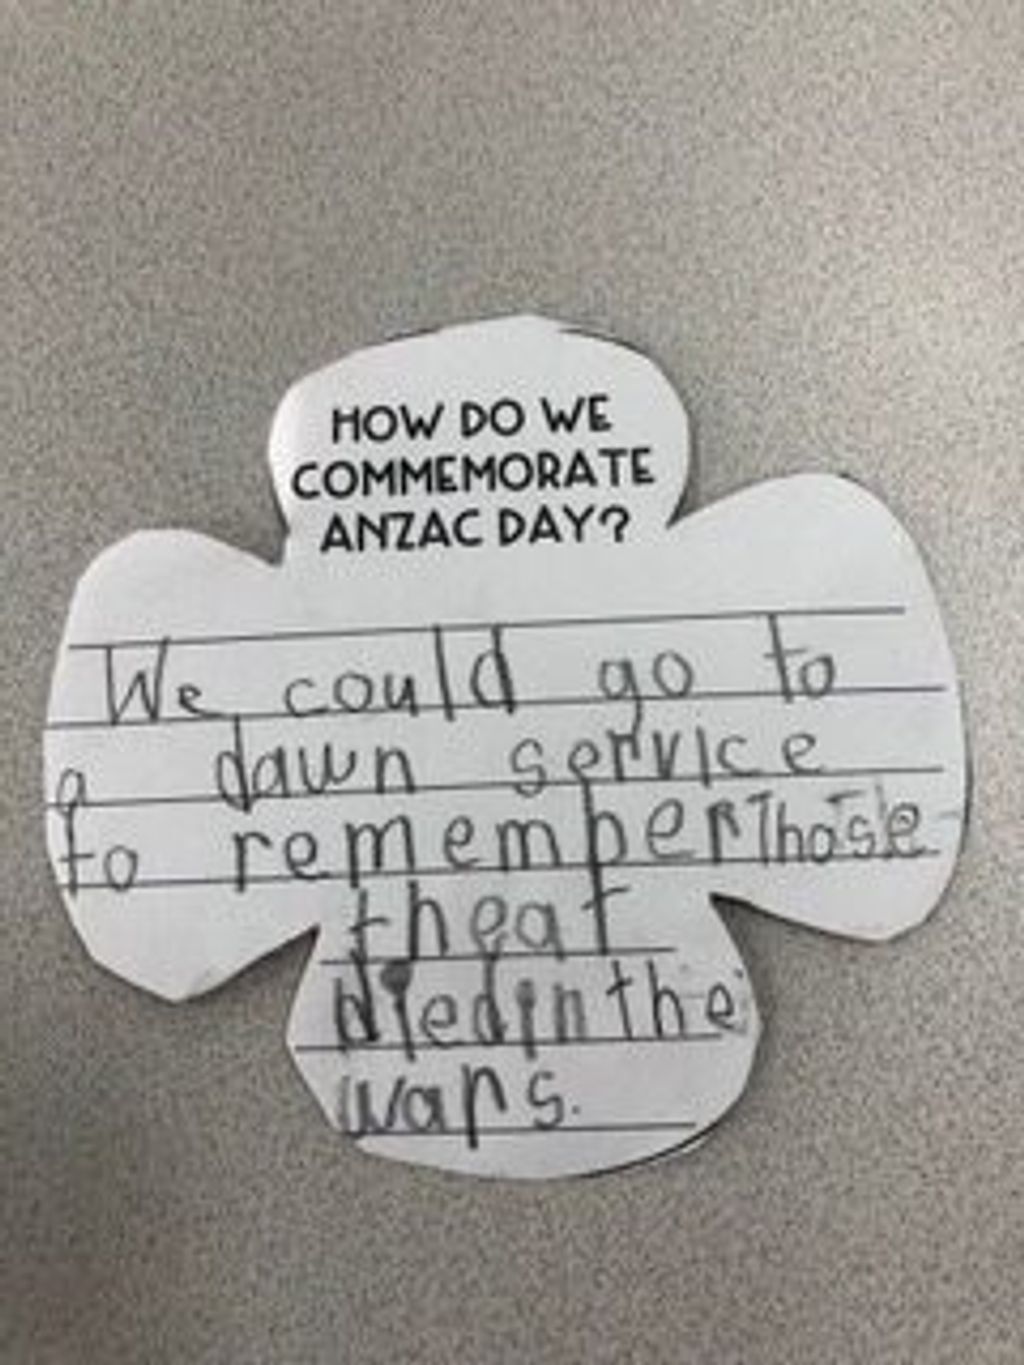 HOW DO WE
COMMEMORATE
ANZAC DAY?
We could go to
a dawn service
to remember Those
theat
died in the
wars.